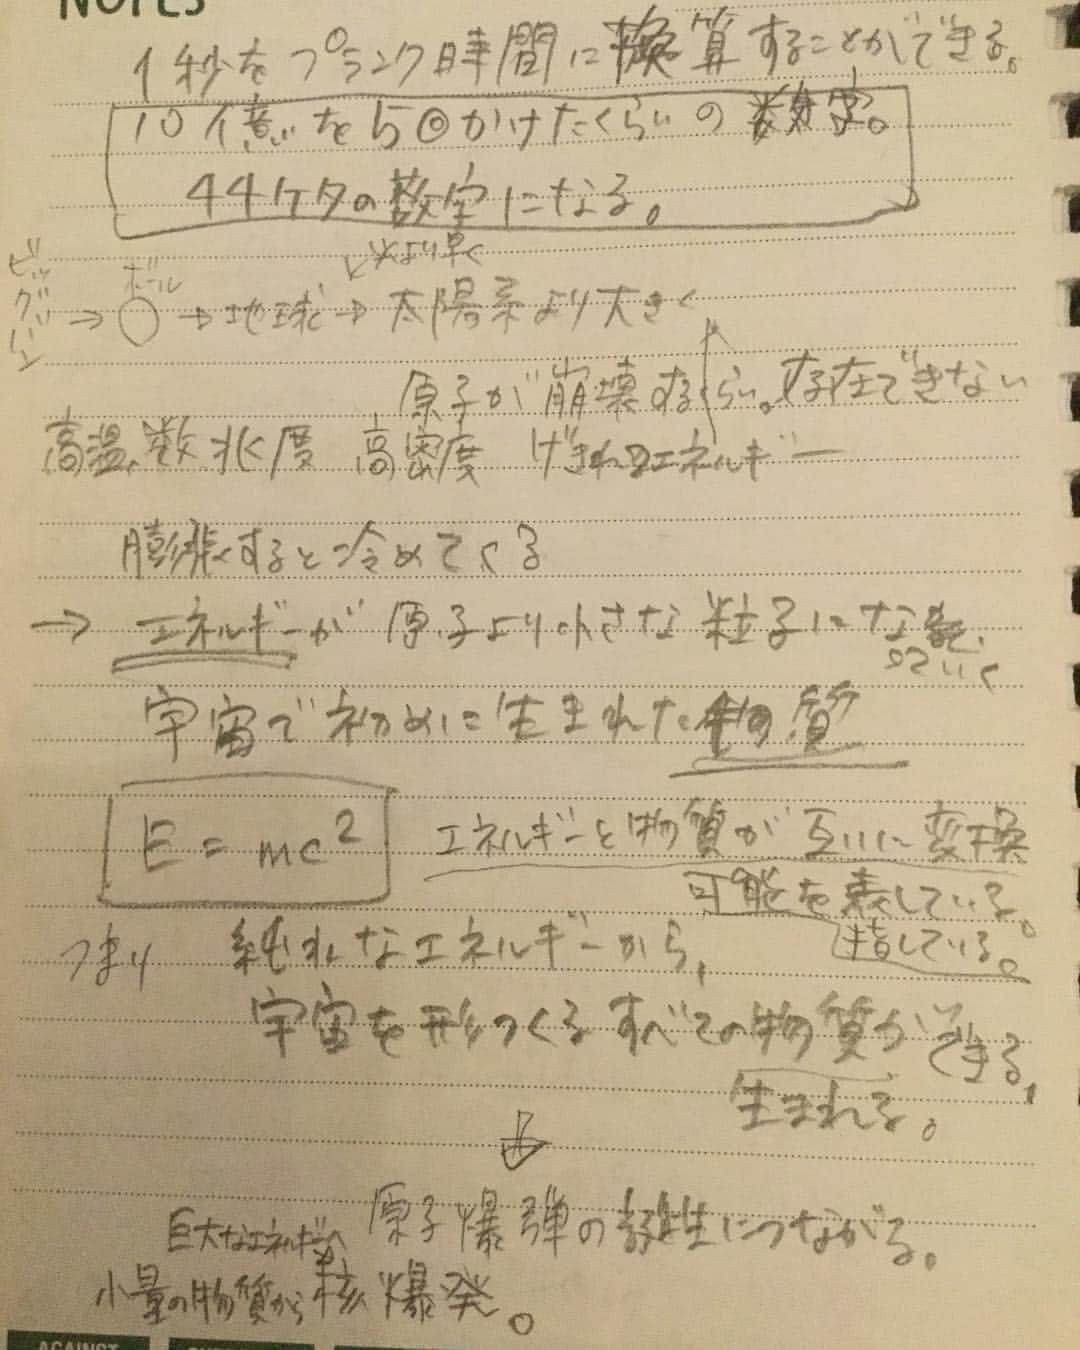 NOTES
1秒をプランク時間に換算することができる。
10億を5回かけたくらいの数字。
44ケタの数字になる。
光より早く
ビッグバン → ボール → 地球 → 太陽系より大きく
原子が崩壊するくらい。存在できない
高温、数兆度 高密度 げきれつエネルギー
膨張すると冷めてくる
→ エネルギーが原子より小さな粒子にな
っていく
宇宙で初めに生まれた物質
E = mc² エネルギーと物質が互いに変換
可能を表している。
指している。
つまり 純粋なエネルギーから、
宇宙を形つくるすべての物質ができる、
生まれる。
↓
原子爆弾の につながる。
巨大なエネルギーへ
小量の物質から核爆発。
AGAINST